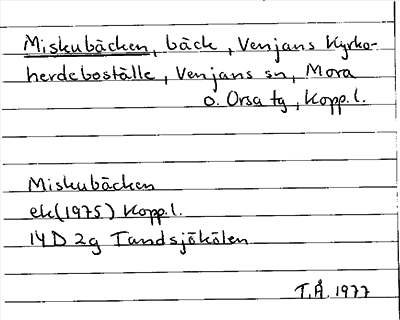 Miskubäcken, bäck, Venjans Kyrko-
herdeboställe, Venjans sn, Mora
o. Orsa tg, Kopp. l.
Miskubäcken
ek (1975) Kopp. l.
14D 2g Tandsjökölen
T.Å. 1977